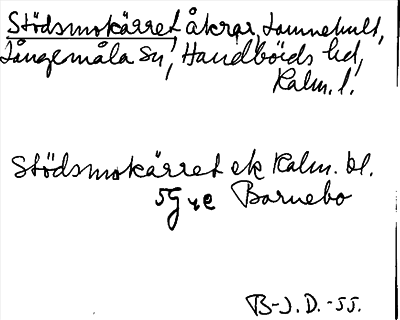 Stödsmokärret, åkrar, Lamnehult,
Långemåla sn, Handbörds hd,
Kalm. l.
Stödsmokärret ek Kalm. bl.
5G 4e Barnebo
B-J.D. -55.